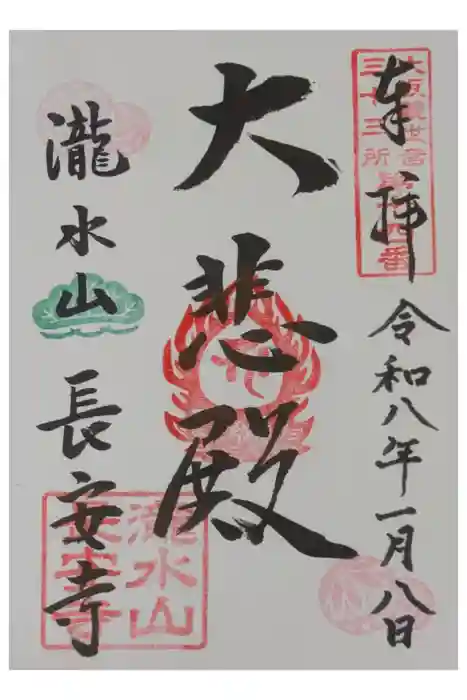 奉拝
令和八年一月八日
大悲殿
瀧水山
長安寺
三十三所
瀧水山
長安寺